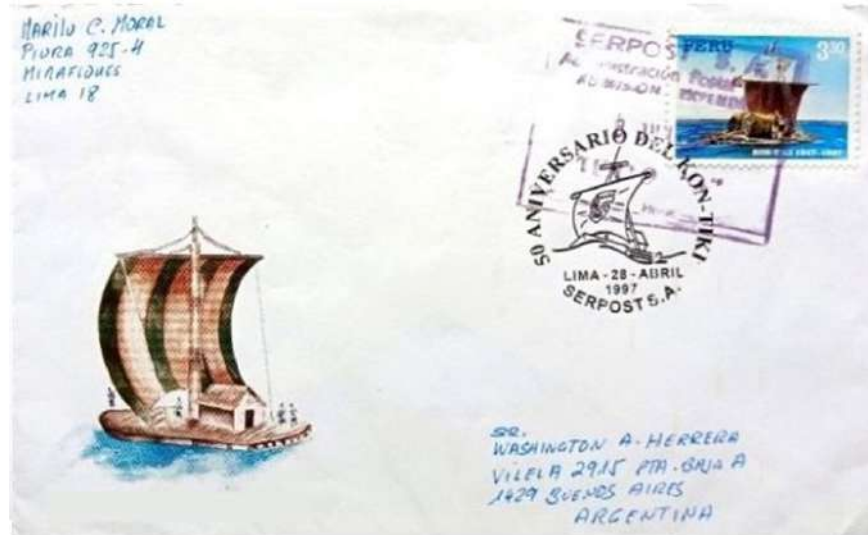 MARILU C. MORAL
PIURA 925-H
MIRAFLORES
LIMA 18
SERPOST S.A.
Administración Postal
ADMISION
PERU
3.30
50 ANIVERSARIO DEL KON-TIKI
LIMA - 28 - ABRIL
1997
SERPOST S.A.
SR.
WASHINGTON A. HERRERA
VILELA 2915 PTA. BAJA A
1429 BUENOS AIRES
ARGENTINA